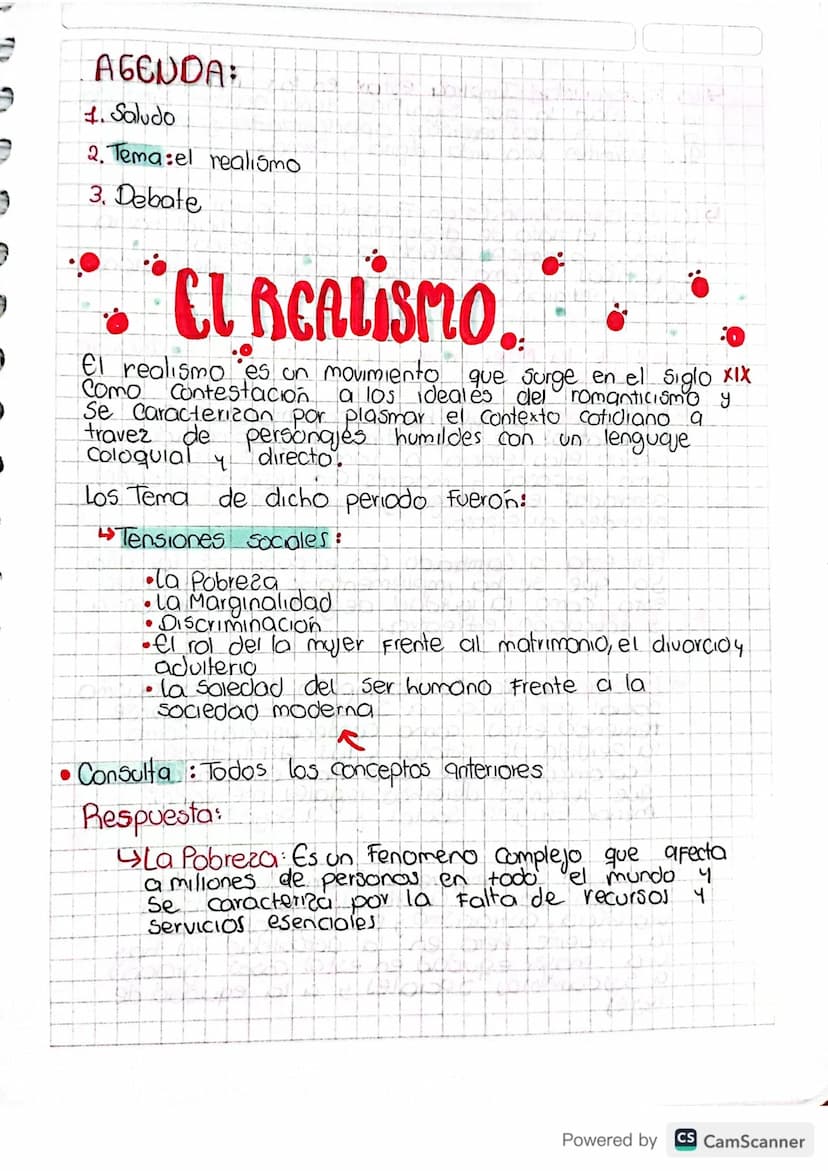 AGENDA:
1. Saludo
2. Tema: el realismo
3. Debate
El REALISMO.
El realismo es un movimiento que surge en el siglo XIX
Como Contestación a los ideales del romanticismo y
se caracterizan por plasmar el contexto cotidiano a
travez de personajes humildes con un lenguaje
coloquial y directo.
Los Tema de dicho periodo fuerón:
↳ Tensiones sociales:
•La Pobreza
•La Marginalidad
•Discriminación
•El rol del la mujer Frente al matrimonio, el divorcio y
adulterio
•la soledad del ser humano Frente a la
sociedad moderna
• Consulta: Todos los conceptos anteriores
Respuesta:
↳La Pobreza: Es un Fenomeno Complejo que afecta
a millones de personas en todo el mundo y
se caracteriza por la Falta de recursos y
servicios esenciales
Powered by CS CamScanner